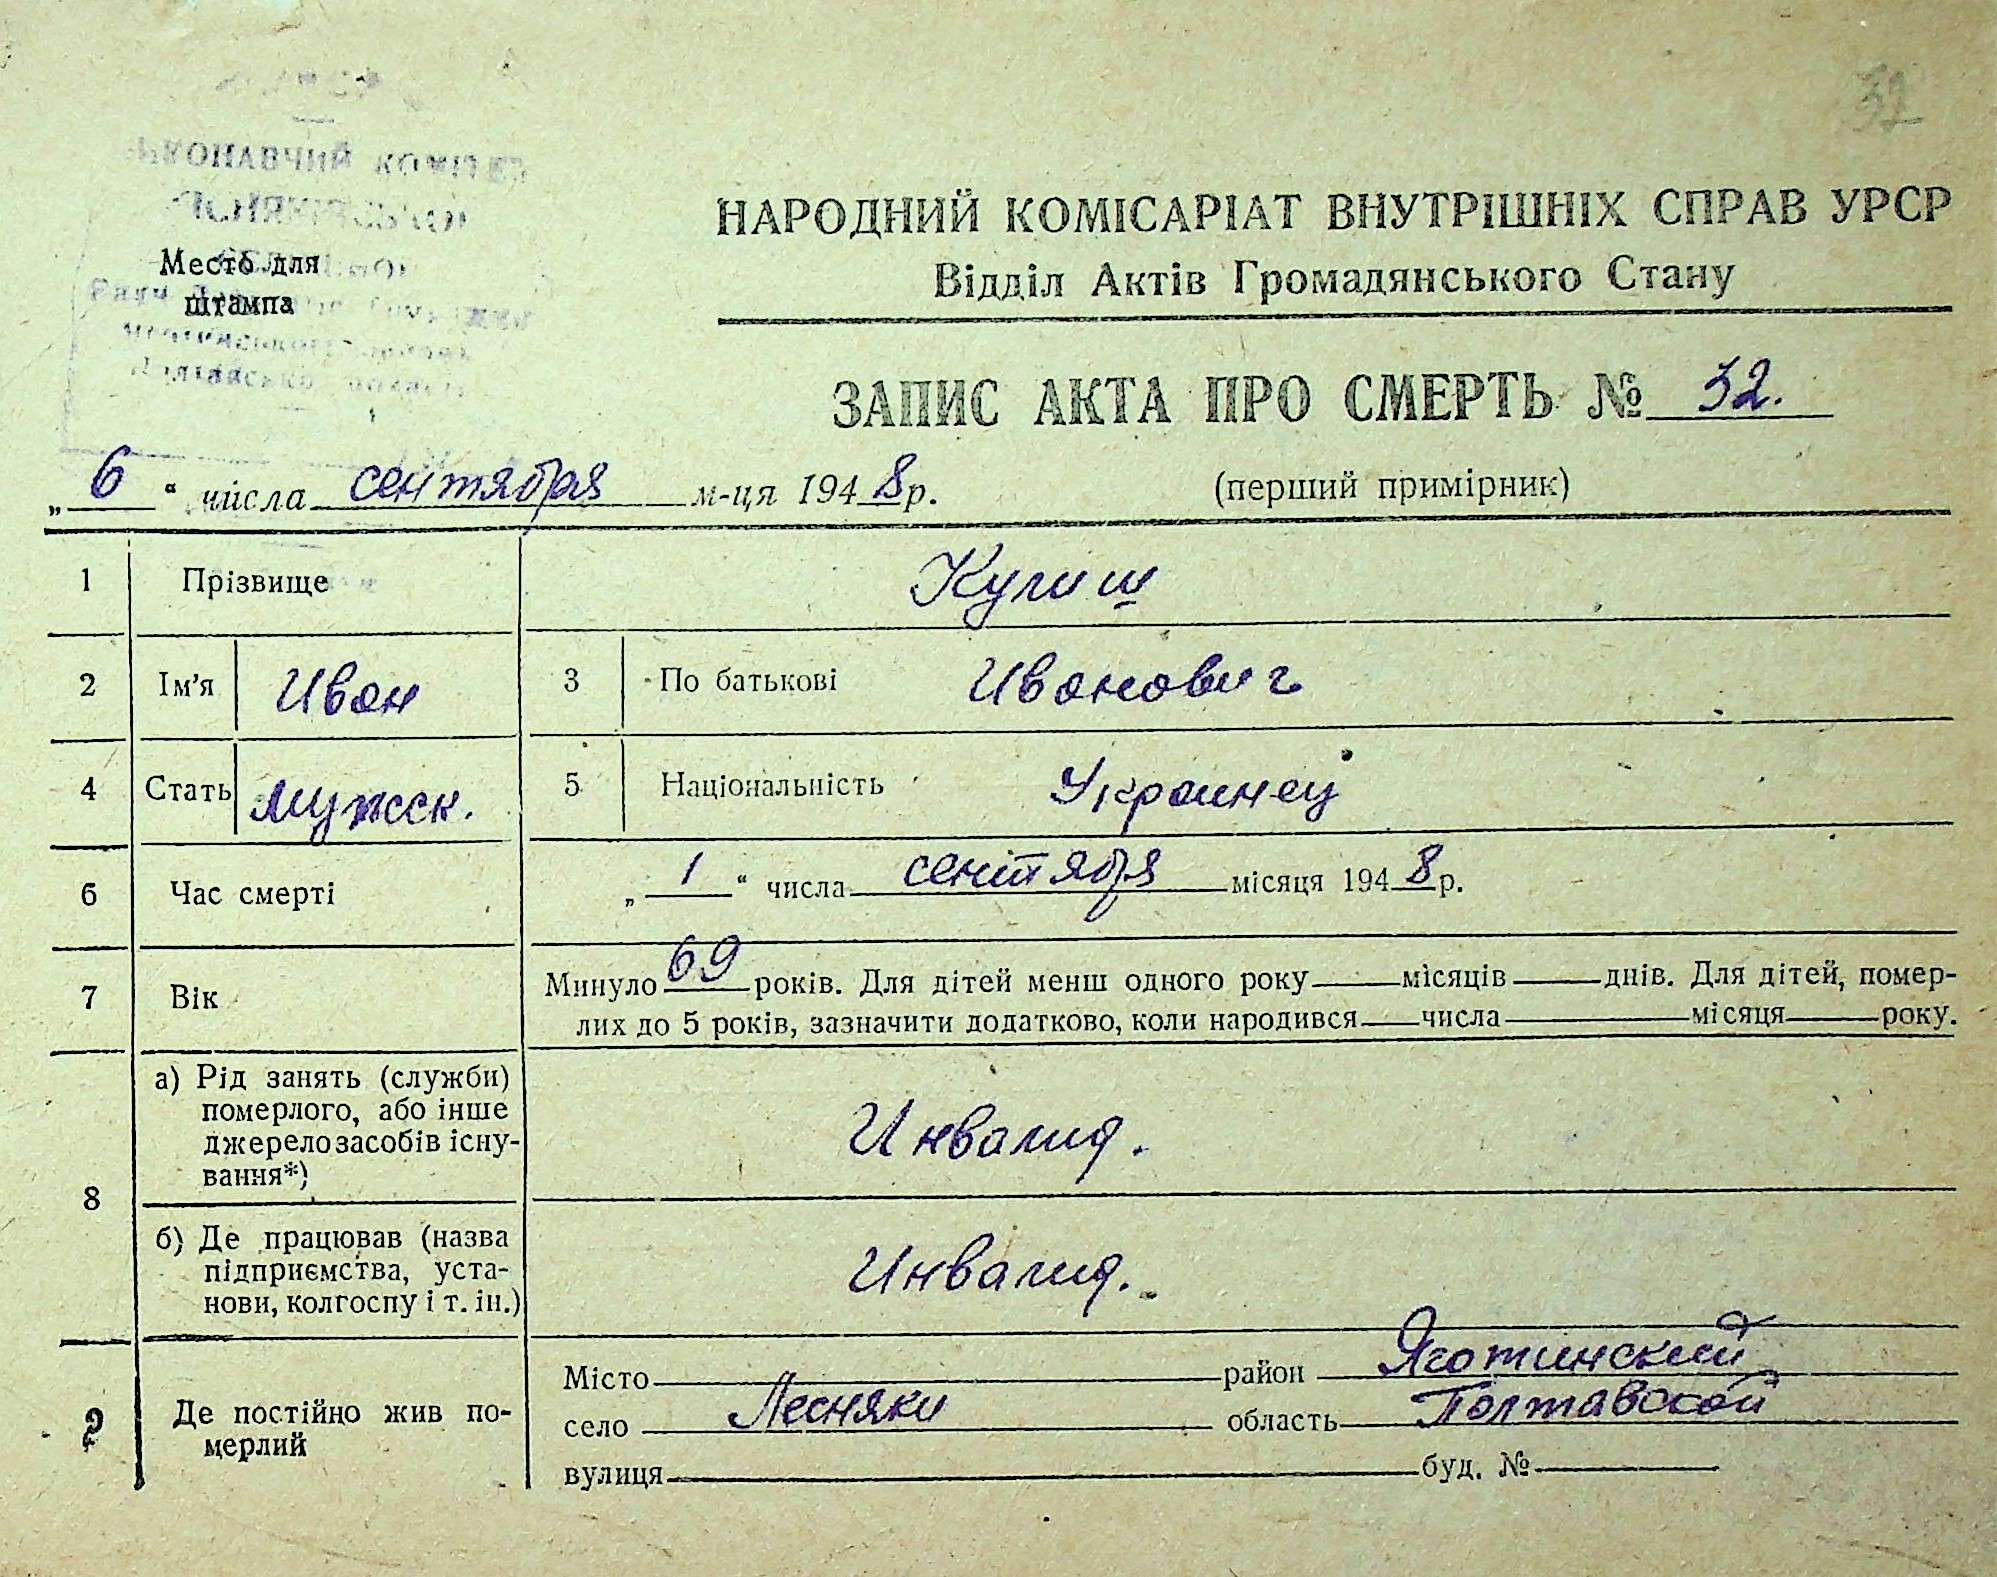 32
ВИКОНАВЧИЙ КОМІТЕТ
Место для
штампа
НАРОДНИЙ КОМІСАРІАТ ВНУТРІШНІХ СПРАВ УРСР
Відділ Актів Громадянського Стану
ЗАПИС АКТА ПРО СМЕРТЬ № 32.
„ 6 “ числа сентября м-ця 1948р. (перший примірник)
1 Прізвище Кулиш
2 Ім'я Иван 3 По батькові Иванович
4 Стать мужск. 5 Національність Украинец
6 Час смерті „ 1 “ числа сентября місяця 1948р.
7 Вік Минуло 69 років. Для дітей менш одного року місяців днів. Для дітей, помер-
лих до 5 років, зазначити додатково, коли народився числа місяця року.
8 а) Рід занять (служби)
померлого, або інше
джерело засобів існу-
вання*)
Инвалид.
б) Де працював (назва
підприємства, уста-
нови, колгоспу і т. ін.)
Инвалид.
9 Де постійно жив по-
мерлий
Місто район Яготинский
село Лесняки область Полтавской
вулиця буд. №